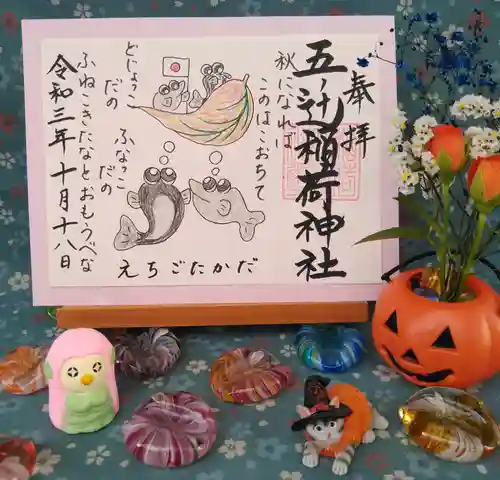 奉拝
五辻稲荷神社
秋になれば
このはこおちて
どじょっこ
だの
ふなっこ
だの
ふねこきたなとおもうべな
令和三年十月十八日
えちごたかだ